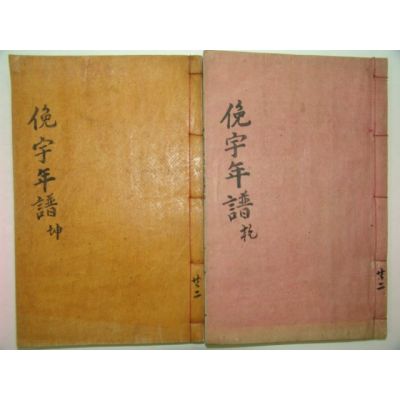 俛宇年譜 乾
共二
俛宇年譜 坤
共二